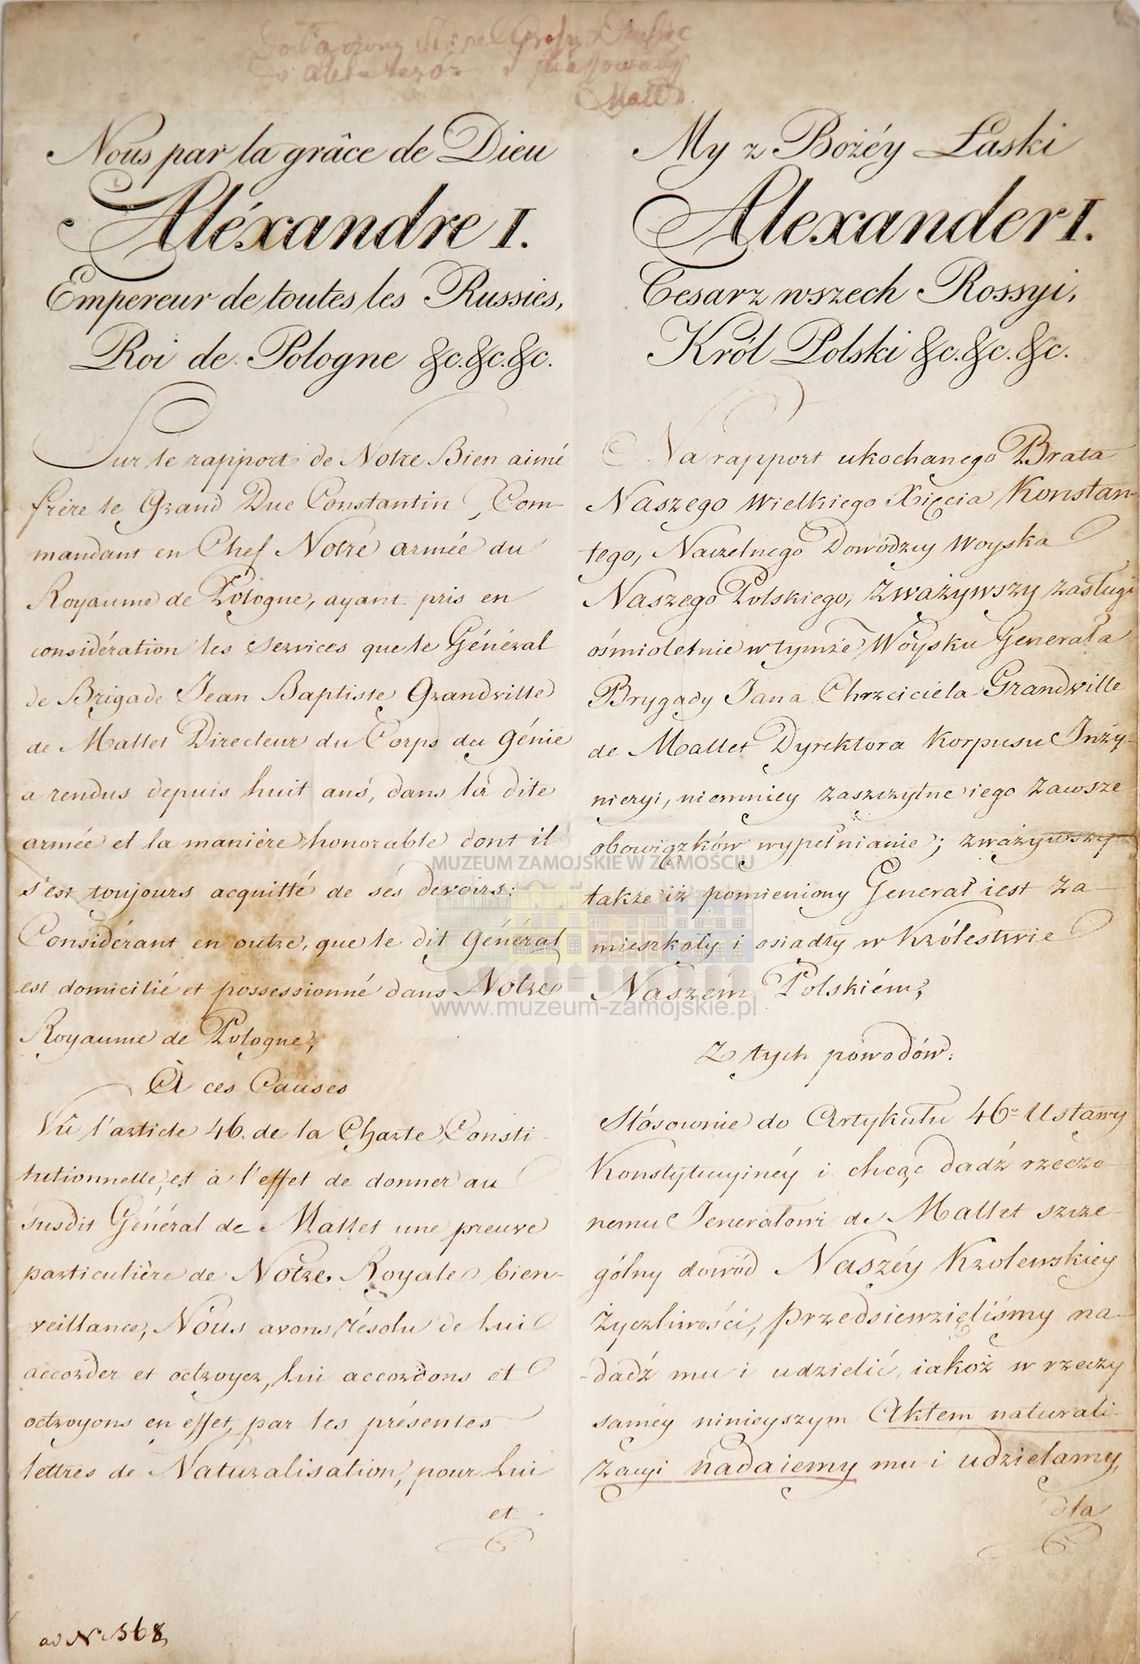 Mall
Nous par la grâce de Dieu
Aléxandre I.
Empereur de toutes les Russies,
Roi de Pologne &c. &c. &c.
Sur le rapport de Notre Bien aimé
frère le Grand Duc Constantin, Com-
mandant en Chef Notre armée du
Royaume de Pologne, ayant pris en
considération les services que le Général
de Brigade Jean Baptiste Grandville
de Mallet Directeur du Corps du génie
a rendus depuis huit ans, dans la dite
armée et la manière honorable dont il
s'est toujours acquitté de ses devoirs:
Considérant en outre, que le dit Général
est domicilié et possessionné dans Notre
Royaume de Pologne,
À ces Causes
Vû l'article 46. de la Charte Consti-
tutionnelle, et à l'effet de donner au
susdit Général de Mallet une preuve
particulière de Notre Royale bien-
veillance, Nous avons résolu de lui
accorder et octroyer, lui accordons et
octroyons en effet, par les présentes
lettres de Naturalisation, pour lui
et
ad N. 368
My z Bożéy Łaski
Alexander I.
Cesarz wszech Rossyi,
Król Polski &c. &c. &c.
Na rapport ukochanego Brata
Naszego Wielkiego Xięcia Konstan-
tego, Naczelnego Dowódzcy Woyska
Naszego Polskiego, zważywszy zasługi
ośmioletnie w tymże Woysku Generała
Brygady Jana Chrzciciela Grandville
de Mallet Dyrektora Korpusu Inży-
nieryi, niemniey zaszczytne iego zawsze
obowiązków wypełnianie; zważywszy
także iż pomieniony Generał iest za-
mieszkały i osiadły w Królestwie
Naszém Polskiém;
Z tych powodów:
Stósownie do Artykułu 46º Ustawy
Konstytucyinéy i chcąc dadź rzeczo-
nemu Jenerałowi de Mallet szcze-
gólny dowód Naszéy Krolewskiey
życzliwości, przedsiewzięliśmy na-
dadź mu i udzielić, iakoż w rzeczy
saméy ninieyszym Aktem naturali-
zacyi nadaiemy mu i udzielamy,
dla
MUZEUM ZAMOJSKIE W ZAMOŚCIU
www.muzeum-zamojskie.pl